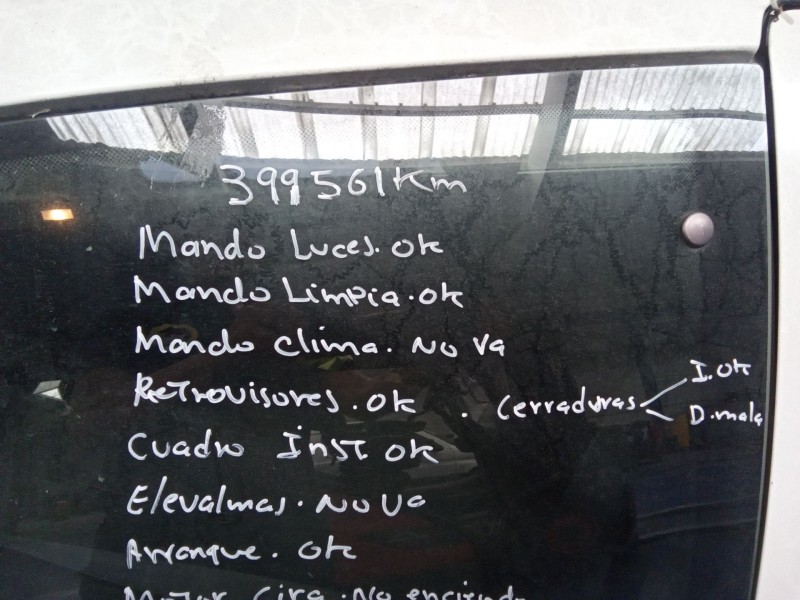 399561Km
Mando Luces. ok
Mando Limpia. ok
Mando clima. No va
Retrovisores. ok . Cerraduras I. ok D. mala
Cuadro Inst. ok
Elevalmas. No va
Arranque. ok
Motor Gira. No enciende